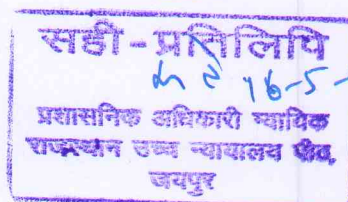 सही - प्रतिलिपि
16-5-
प्रशासनिक अधिकारी न्यायिक
राजस्थान उच्च न्यायालय पीठ,
जयपुर